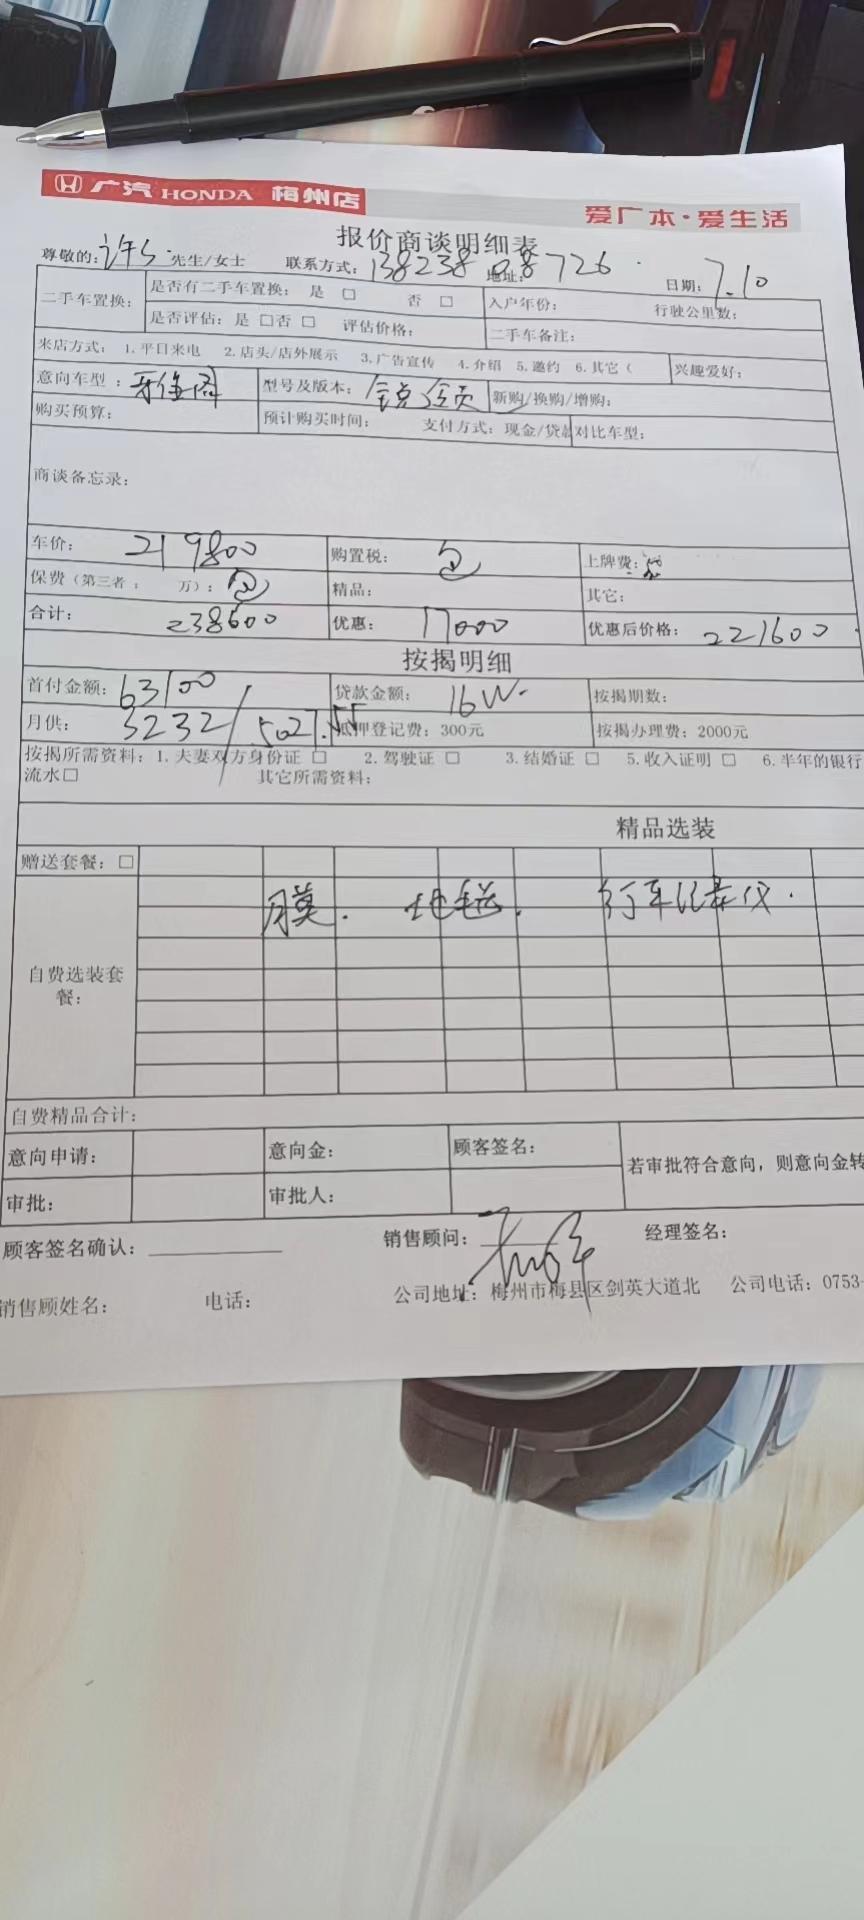 广汽 HONDA 梅州店
爱广本·爱生活
报价商谈明细表
尊敬的: 许S. 先生/女士 联系方式: 13823808726. 地址: 日期: 7.10
二手车置换: 是否有二手车置换: 是 □ 否 □ 入户年份: 行驶公里数:
是否评估: 是 □否 □ 评估价格: 二手车备注:
来店方式: 1.平日来电 2.店头/店外展示 3.广告宣传 4.介绍 5.邀约 6.其它( 兴趣爱好:
意向车型: 牙佳阁 型号及版本: 新购/换购/增购:
购买预算: 预计购买时间: 支付方式: 现金/贷款 对比车型:
商谈备忘录:
车价: 219800 购置税: 包 上牌费:
保费(第三者: 万): 包 精品: 其它:
合计: 238600 优惠: 17000 优惠后价格: 221600
按揭明细
首付金额: 63100 贷款金额: 16W. 按揭期数:
月供: 3232/5027.55 抵押登记费: 300元 按揭办理费: 2000元
按揭所需资料: 1.夫妻双方身份证 □ 2.驾驶证 □ 3.结婚证 □ 5.收入证明 □ 6.半年的银行
流水□ 其它所需资料:
精品选装
赠送套餐: □
膜. 地毯. 行车记录仪.
自费选装套
餐:
自费精品合计:
意向申请: 意向金: 顾客签名: 若审批符合意向，则意向金转
审批: 审批人:
顾客签名确认: 销售顾问: 经理签名:
销售顾姓名: 电话: 公司地址: 梅州市梅县区剑英大道北 公司电话: 0753-